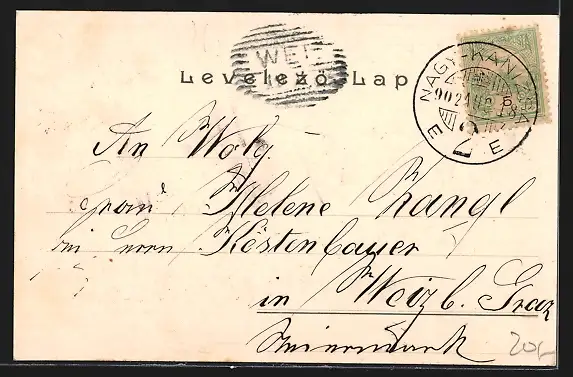 WEI
Levelező Lap
NAGY-KANIZSA
An Wolg.
Frau Helene Zangl
bei Herrn Köstenbauer
in Weiz b. Graz
Steiermark
20,-